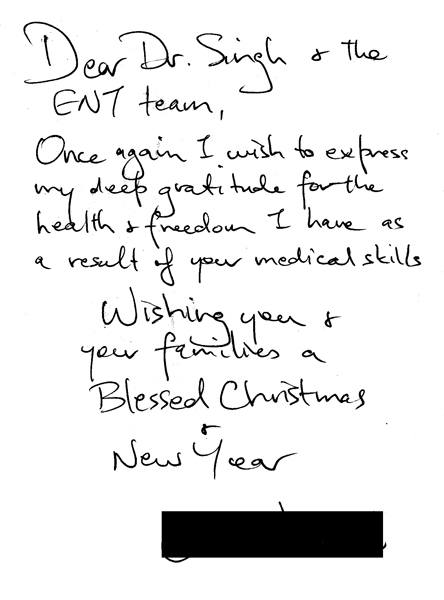 Dear Dr. Singh & the
ENT team,
Once again I wish to express
my deep gratitude for the
health & freedom I have as
a result of your medical skills
Wishing you &
your families a
Blessed Christmas
&
New Year